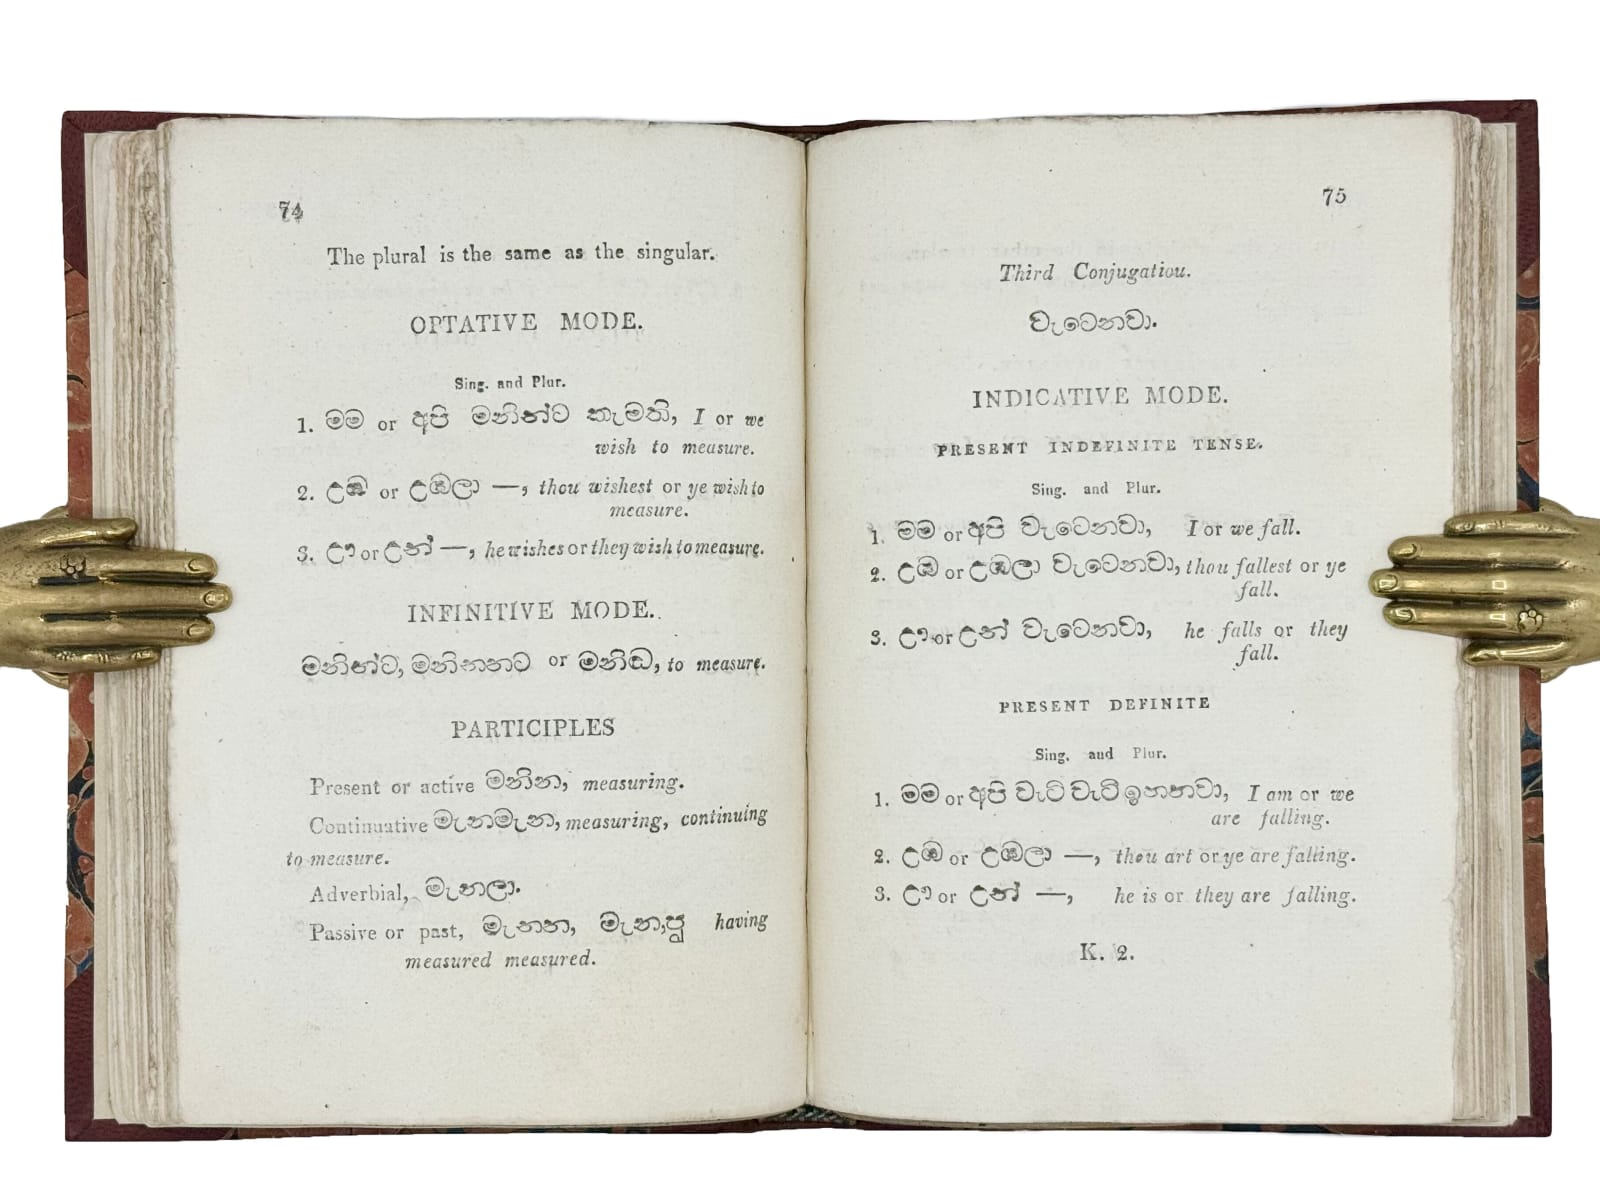 74
The plural is the same as the singular.
OPTATIVE MODE.
Sing. and Plur.
1. මම or අපි මනින්ට කැමති, I or we
wish to measure.
2. උඹ or උඹලා —, thou wishest or ye wish to
measure.
3. ඌ or උන් —, he wishes or they wish to measure.
INFINITIVE MODE.
මනින්ට, මනිනහට or මනිඬ, to measure.
PARTICIPLES
Present or active මනින, measuring.
Continuative මැනමැන, measuring, continuing
to measure.
Adverbial, මැනලා.
Passive or past, මැනන, මැන,පු having
measured measured.
75
Third Conjugatiou.
වැටෙනවා.
INDICATIVE MODE.
PRESENT INDEFINITE TENSE.
Sing. and Plur.
1. මම or අපි වැටෙනවා, I or we fall.
2. උඹ or උඹලා වැටෙනවා, thou fallest or ye
fall.
3. ඌ or උන් වැටෙනවා, he falls or they
fall.
PRESENT DEFINITE
Sing. and Plur.
1. මම or අපි වැටි වැටි ඉන්නවා, I am or we
are falling.
2. උඹ or උඹලා —, thou art or ye are falling.
3. ඌ or උන් —, he is or they are falling.
K. 2.